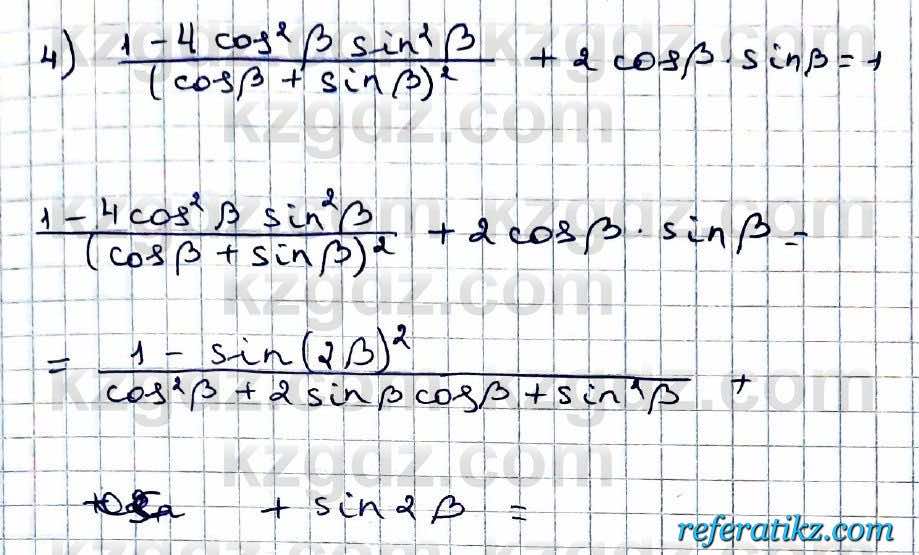 4) (1 - 4 cos² β sin² β)/(cosβ + sin β)² + 2 cosβ · sinβ = 1
kzgdz.com
(1 - 4 cos² β sin² β)/(cosβ + sin β)² + 2 cosβ · sin β =
kzgdz.com
= (1 - sin(2β)²)/(cos²β + 2 sinβ cosβ + sin²β) +
kzgdz.com
+ sin 2β =
kzgdz.com
referatikz.com